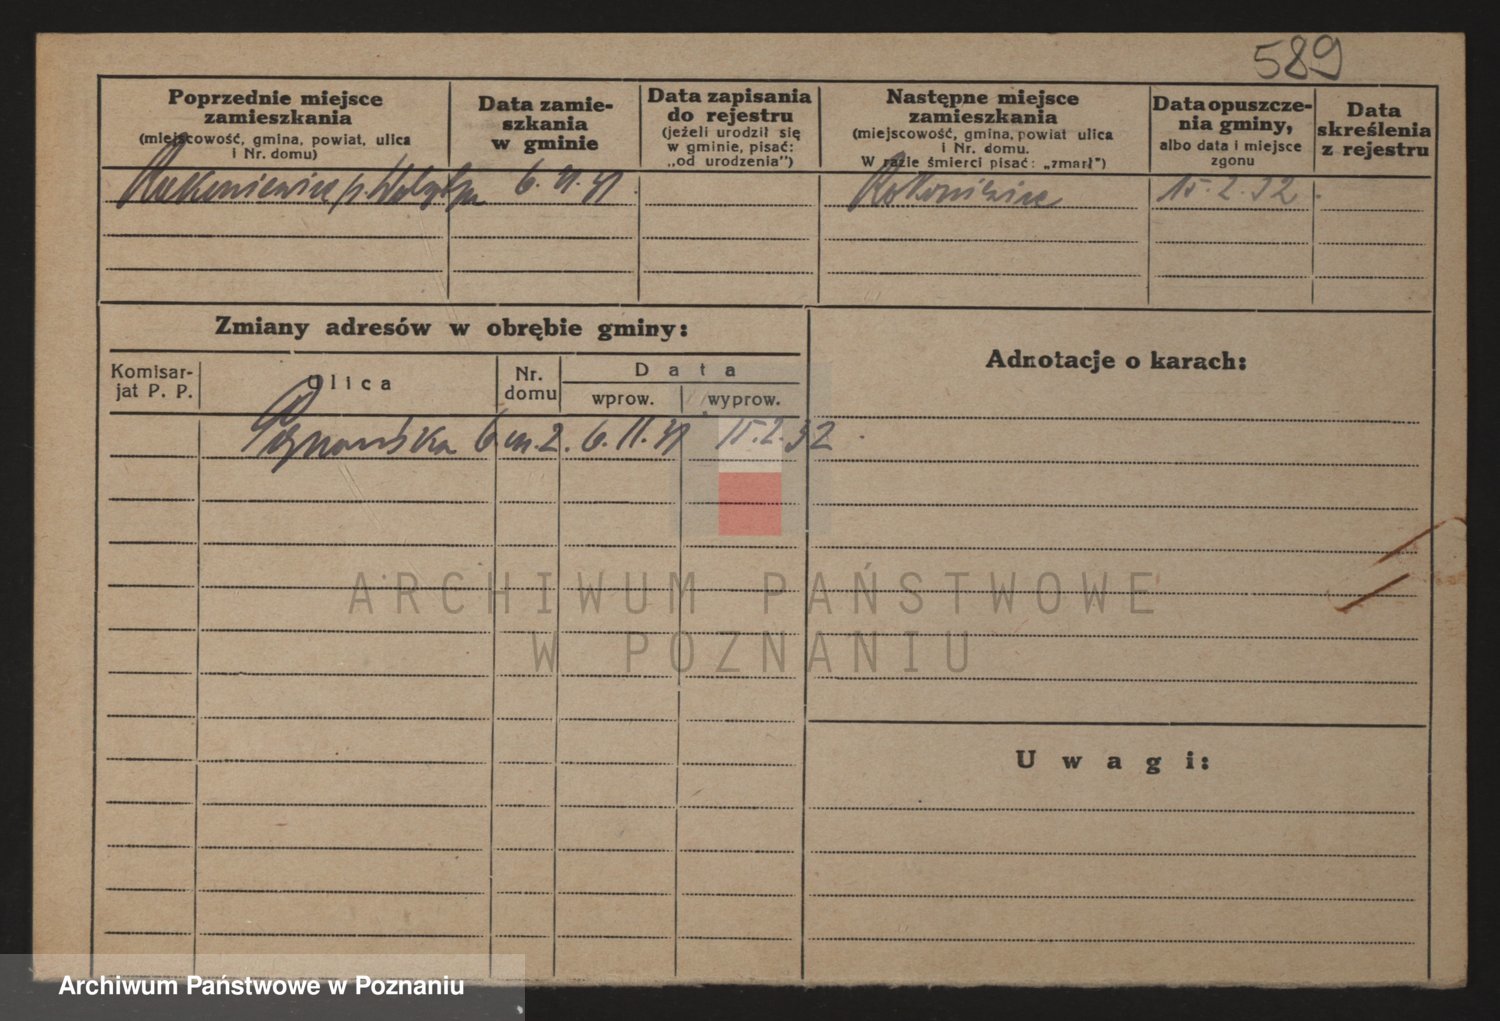 589
Poprzednie miejsce
zamieszkania
(miejscowość, gmina, powiat, ulica
i Nr. domu)
Data zamie-
szkania
w gminie
Data zapisania
do rejestru
(jeżeli urodził się
w gminie, pisać:
„od urodzenia")
Następne miejsce
zamieszkania
(miejscowość, gmina, powiat ulica
i Nr. domu.
W razie śmierci pisać: „zmarł")
Data opuszcze-
nia gminy,
albo data i miejsce
zgonu
Data
skreślenia
z rejestru
Rakoniewice p. Wolsztyn 6.11.31
Rakoniewice 15.2.32
Zmiany adresów w obrębie gminy:
Komisar-
jat P. P.
Ulica
Nr.
domu
Data
wprow.
wyprow.
Poznańska 6 m. 2. 6.11.31 15.2.32
Adnotacje o karach:
Uwagi:
ARCHIWUM PAŃSTWOWE
W POZNANIU
Archiwum Państwowe w Poznaniu